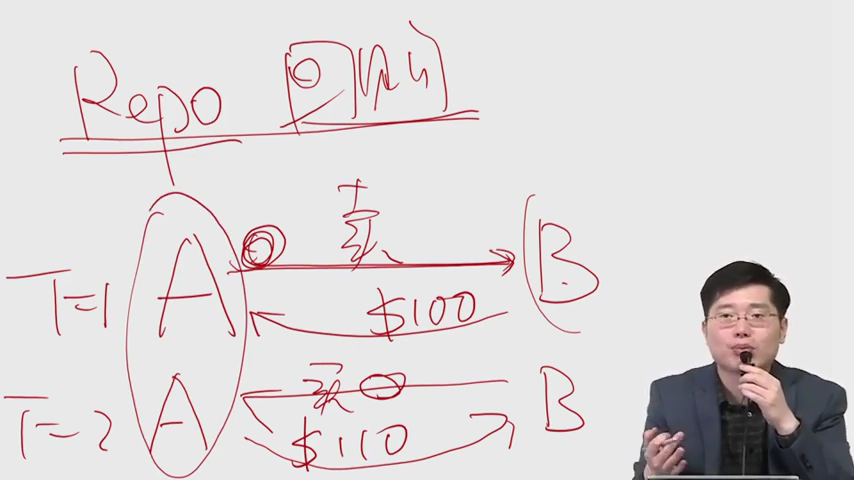 Repo 回购
卖
T=1 A B
$100
买
T=2 A B
$110